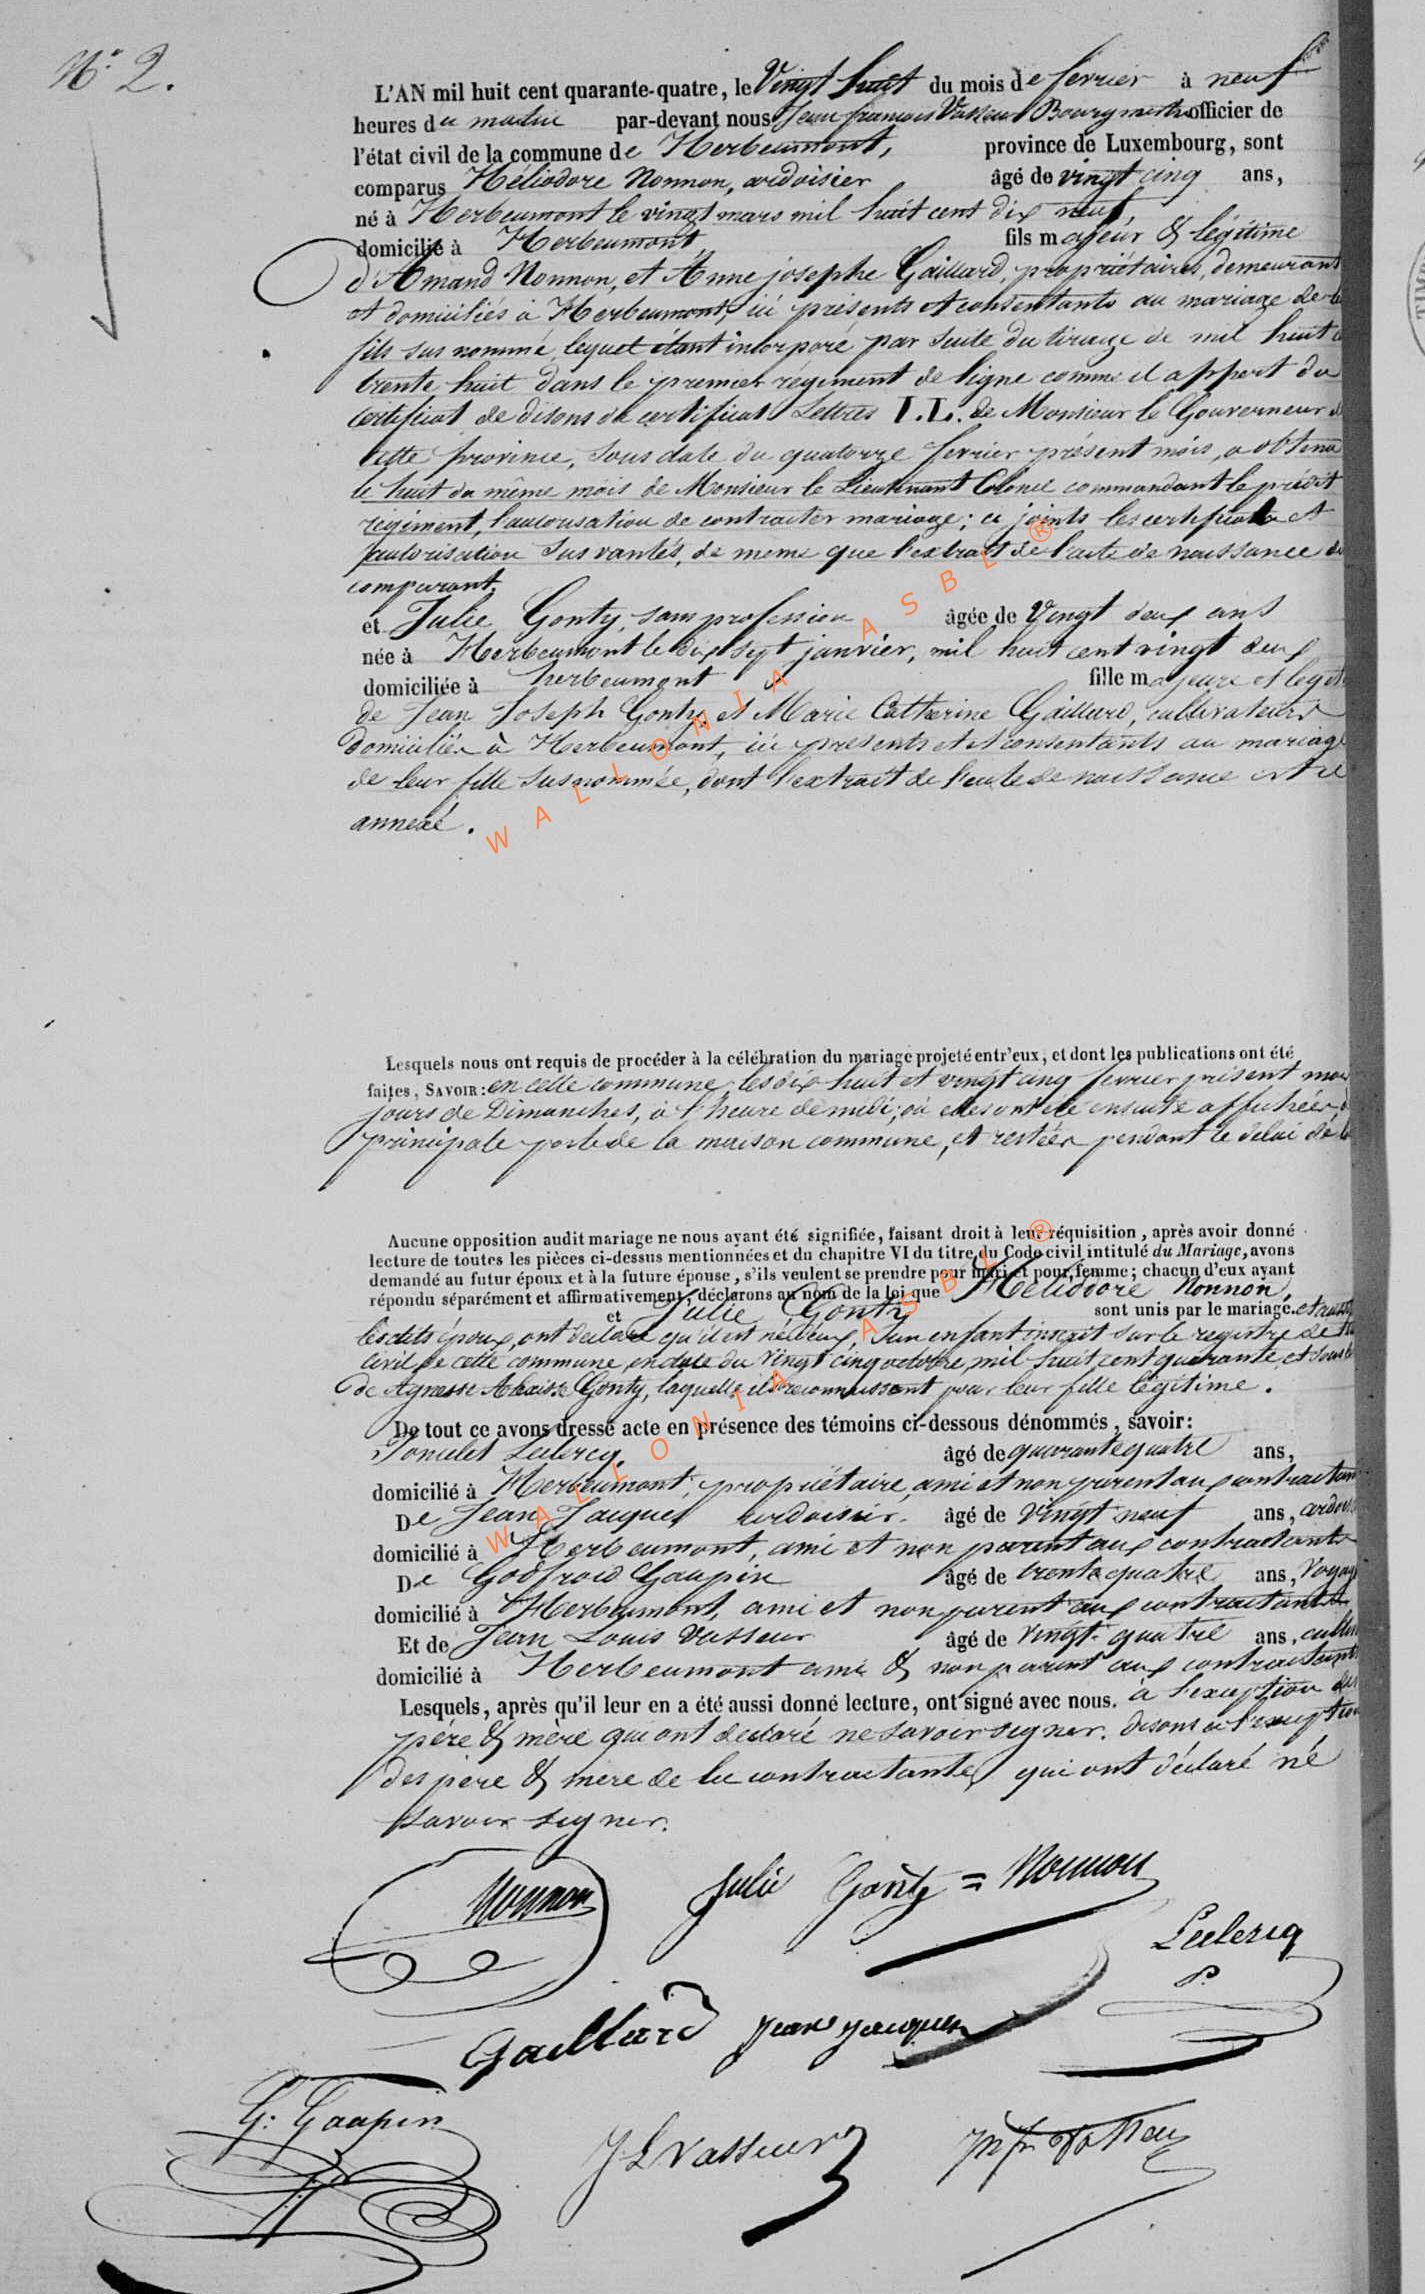 N° 2.
L'AN mil huit cent quarante-quatre, le Vingt huit du mois de fevrier à neuf
heures du matin par-devant nous Jean francois Vasseur Bourgmestre officier de
l'état civil de la commune de Herbeumont, province de Luxembourg, sont
comparus Héliodore Nonnon, ardoisier âgé de vingt cinq ans,
né à Herbeumont le vingt mars mil huit cent dix neuf,
domicilié à Herbeumont, fils majeur & légitime
d'Amand Nonnon, et Anne josephe Gaillard, propriétaires, demeurant
et domiciliés à Herbeumont, ici présents et consentants au mariage de
fils sus nommé, lequel étant incorporé par suite du tirage de mil huit
trente huit dans le premier régiment de ligne comme il appert du
certificat de disons du certificat Lettres I.L. de Monsieur le Gouverneur
cette province, sous date du quatorze fevrier présent mois, a obtenu
le huit du même mois de Monsieur le Lieutenant Colonel commandant le prédit
régiment, l'autorisation de contracter mariage; ci joints les certificats et
autorisation sus vantés, de meme que l'extrait de l'acte de naissance du
comparant.
et Julie Gonty, sans profession âgée de Vingt deux ans
née à Herbeumont le dix sept janvier, mil huit cent vingt deux
domiciliée à herbeumont fille majeure et legit
de Jean Joseph Gonty et Marie Catherine Gaillard, cultivateurs
domiciliés à Herbeumont, ici présents et consentants au mariage
de leur fille susnommée, dont l'extrait de l'acte de naissance est ci
annexé.
Lesquels nous ont requis de procéder à la célébration du mariage projeté entr'eux, et dont les publications ont été
faites, SAVOIR: en cette commune, les dix huit et vingt cinq fevrier présent mois
jours de Dimanches, à l'heure de midi; où elles ont été ensuite affichées,
principale porte de la maison commune, et restées pendant le délai de
Aucune opposition audit mariage ne nous ayant été signifiée, faisant droit à leur réquisition, après avoir donné
lecture de toutes les pièces ci-dessus mentionnées et du chapitre VI du titre du Code civil intitulé du Mariage, avons
demandé au futur époux et à la future épouse, s'ils veulent se prendre pour mari et pour femme; chacun d'eux ayant
répondu séparément et affirmativement, déclarons au nom de la loi que Héliodore Nonnon,
et Julie Gonty sont unis par le mariage. et aussitôt
lesdits époux, ont déclaré qu'il est né d'eux, un enfant inscrit sur le registre de
civil de cette commune, en date du vingt cinq octobre, mil huit cent quarante, et sous le
de Agnesse Alexisse Gonty, laquelle ils reconnaissent pour leur fille légitime.
De tout ce avons dressé acte en présence des témoins ci-dessous dénommés, savoir:
Poncelet Leclercq, âgé de quarante quatre ans,
domicilié à Herbeumont, propriétaire, ami et non parent aux contractans
De Jean Jacques ardoisier. âgé de vingt neuf ans, ardois
domicilié à Herbeumont, ami et non parent aux contractants
De Godfroid Gaupin âgé de trente quatre ans, Voyag
domicilié à Herbeumont, ami et non parent aux contractants
Et de Jean Louis Vasseur âgé de vingt quatre ans, cultiv
domicilié à Herbeumont ami & non parent aux contractants
Lesquels, après qu'il leur en a été aussi donné lecture, ont signé avec nous. à l'exception des
père & mère qui ont déclaré ne savoir signer. disons à l'exception
des père & mère de la contractante, qui ont déclaré né
savoir signer.
Nonnon Julie Gonty = Nonnon
Leclercq
P.
Gaillard Jean Jacques
G: Gaupin
J L Vasseur
WALLONIA ASBL ®
WALLONIA ASBL ®